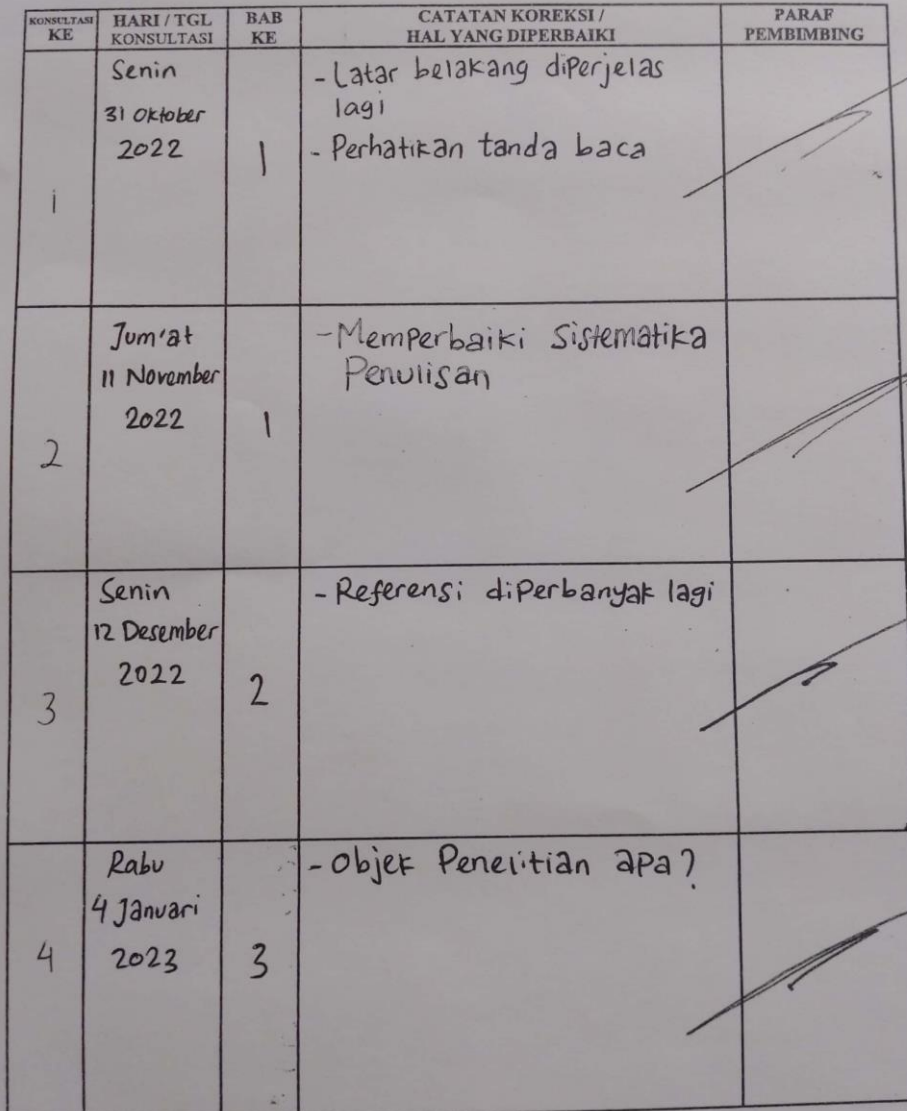 KONSULTASI KE
HARI / TGL KONSULTASI
BAB KE
CATATAN KOREKSI / HAL YANG DIPERBAIKI
PARAF PEMBIMBING
1
Senin
31 Oktober
2022
1
- Latar belakang diperjelas
lagi
- Perhatikan tanda baca
2
Jum'at
11 November
2022
1
- Memperbaiki Sistematika
Penulisan
3
Senin
12 Desember
2022
2
- Referensi diperbanyak lagi
4
Rabu
4 Januari
2023
3
- Objek Penelitian apa?